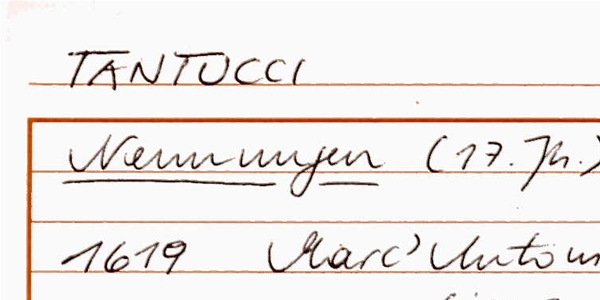 TANTUCCI
Nennungen (17. Jh.)
1619 Marc'Anton